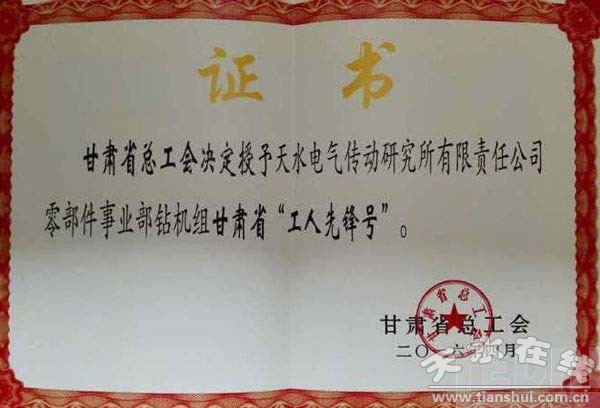 证书
甘肃省总工会决定授予天水电气传动研究所有限责任公司
零部件事业部钻机组甘肃省“工人先锋号”。
甘肃省总工会
甘肃省总工会
二〇一六年四月
天水在线
www.tianshui.com.cn